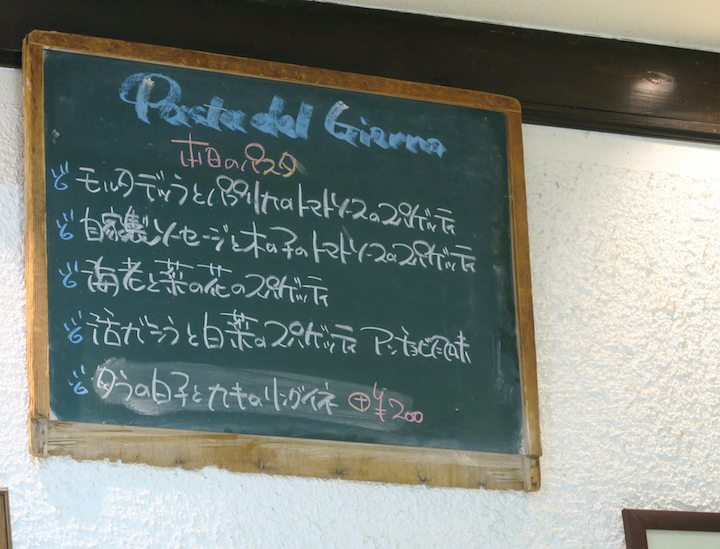 Pasta del Giorno
本日のパスタ
モルタデッラとパプリカのトマトソースのスパゲッティ
自家製ソーセージと木の子のトマトソースのスパゲッティ
海老と菜の花のスパゲッティ
活ガシラと白菜のスパゲッティ アンチョビ風味
タラの白子とカキのリングイネ ⊕¥200